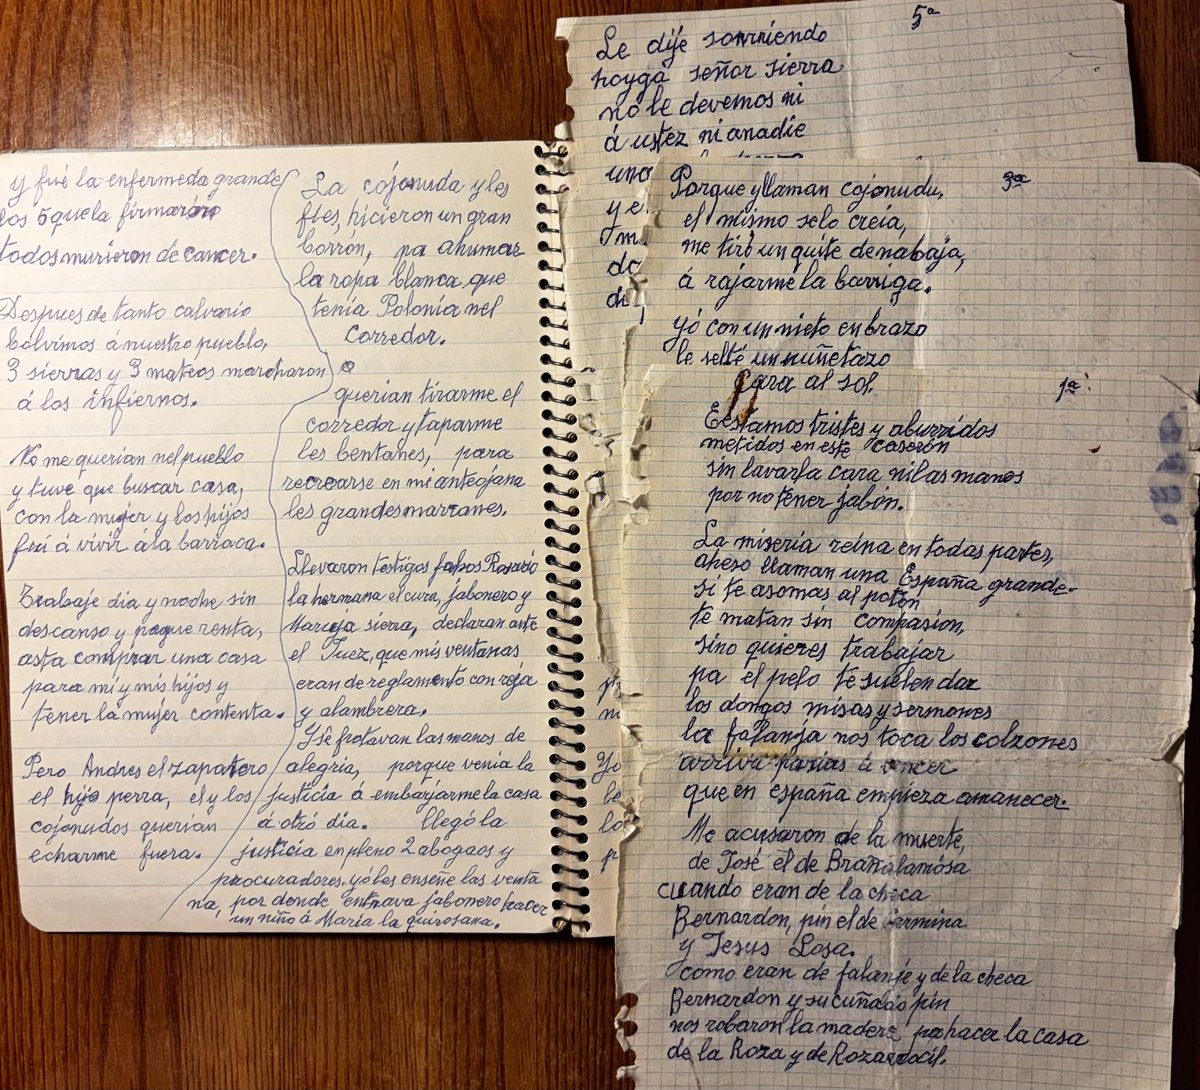 y fué la enfermeda grande
los 5 que la firmarón
todos murieron de cancer.
Despues de tanto calvario
bolvimos á nuestro pueblo,
3 sierras y 3 mateos marcharon
á los infiernos.
No me querian nel pueblo
y tuve que buscar casa,
con la mujer y los hijos
fuí á vivir á la barraca.
Trabaje dia y noche sin
descanso y pague renta,
asta comprar una casa
para mí y mis hijos y
tener la mujer contenta.
Pero Andres el zapatero
el hijo perra, el y los
cojonudos querian
echarme fuera.
La cojonuda y les
fies, hicieron un gran
borron, pa ahumar
la ropa blanca, que
tenia Polonia nel
corredor.
querian tirarme el
corredor y taparme
les bentanes, para
recrearse en mi antojana
les grandes marranes.
Llevaron testigos falsos Rosario
la hermana el cura, jabonero y
Maruja sierra, declaran ante
el Juez, que mis ventanas
eran de reglamento con reja
y alambrera.
Y se frotavan las manos de
alegria, porque venia la
justicia á embarjarme la casa
á otró dia. llegó la
justicia en pleno 2 abogaos y
procuradores, yó les enseñe las venta
na, por donde entrava jabonero hacer
un niño á Maria la quirosana.
5ª
Le dije sonrriendo
hoyga señor sierra
no le devemos ni
á ustez ni anadie
una
y e
do
de
3ª
Porque yllaman cojonudu,
el mismo selo creia,
me tiró un quite de nabaja,
á rajarme la barriga.
yó con un nieto en brazo
le solté un puñetazo
1ª
Cara al sol.
Eestamos tristes y aburridos
metidos en este caserón
sin lavarla cara nilas manos
por no tener jabón.
La miseria reina en todas partes,
aheso llaman una España grande.
si te asomas al potón
te matan sin compasion,
sino quieres trabajar
pa el pelo te suelen dar
los dongos misas y sermones
la falanja nos toca los colzones
arriva parias á vencer
que en españa empieza amanecer.
Me acusaron de la muerte,
de José el de Brañalamósa
cuando eran de la checa
Bernardon, pin el de jermina
y Jesus Losa.
como eran de falanje y de la checa
Bernardon y su cuñado pin
nos robaron la madera pa hacer la casa
de la Roza y de Rozarrocil.